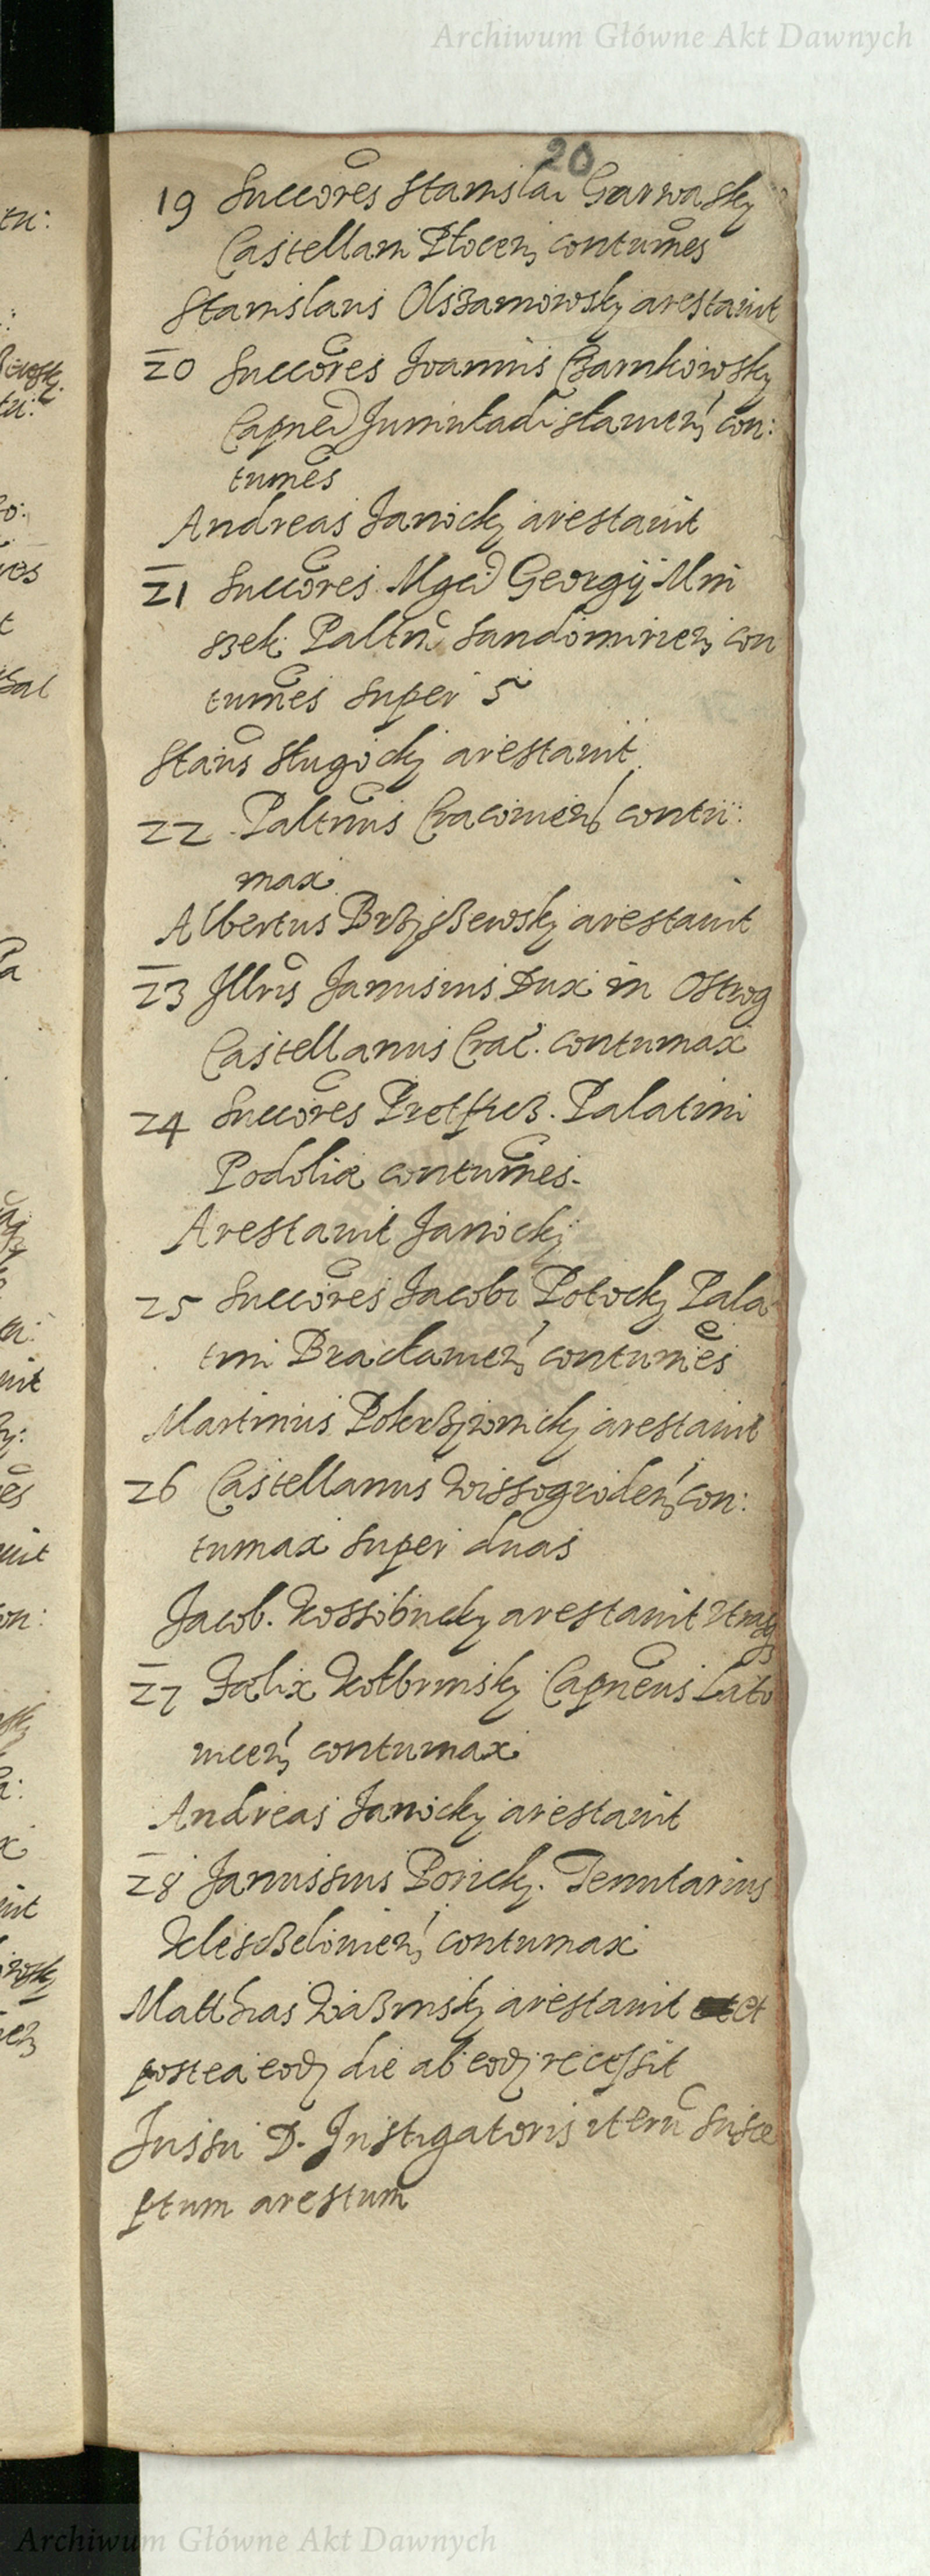 Archiwum Główne Akt Dawnych
20
19 Succōres Stanislai Garwasky
Castellani Płocen̄ contumēs
Stanislaus Olszamowsky arestauit
20 Succōres Joannis Czarnkowsky
Capnei Juniwładislauien̄ con:
tumēs
Andreas Janicky arestauit
21 Succōres Mgci Georgij Mni
szek Paltni Sandomirien̄ con
tumēs super 5
Stan̄s Sługocky arestauit
22 Paltnus Cracouien̄ contu:
max
Albertus Brzyszewsky arestauit
23 Illris Janusius Dux in Ostrog
Castellanus Crac. contumax
24 Succōres Pretficz. Palatini
Podoliæ contumēs.
Arestauit Janicky
25 Succōres Jacobi Potocky Pala
tini Bracłauien̄ contumēs
Martinus Pokrzywnicky arestauit
26 Castellanus Wissogroden̄ con:
tumax super duas
Jacob. Kossobucky arestauit utrasq
27 Fælix Kołbrinsky Capneus Lato
uicen̄ contumax
Andreas Janicky arestauit
28 Janussius Poricky. Tenutarius
Klesczelouien̄ contumax
Matthias Wazinsky arestauit et
postea eodẽ die ab eodẽ recessit
Jussu D. Instigatoris iterū susce
ptum arestum
Archiwum Główne Akt Dawnych